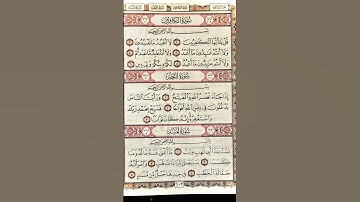 سُورَةُ الكَافِرُونَ
بِسْمِ اللَّهِ الرَّحْمَٰنِ الرَّحِيمِ
قُلْ يَا أَيُّهَا الْكَافِرُونَ ۝ لَا أَعْبُدُ مَا تَعْبُدُونَ ۝
وَلَا أَنْتُمْ عَابِدُونَ مَا أَعْبُدُ ۝ وَلَا أَنَا عَابِدٌ مَا عَبَدْتُمْ ۝
وَلَا أَنْتُمْ عَابِدُونَ مَا أَعْبُدُ ۝ لَكُمْ دِينُكُمْ وَلِيَ دِينِ ۝
سُورَةُ النَّصْرِ
بِسْمِ اللَّهِ الرَّحْمَٰنِ الرَّحِيمِ
إِذَا جَاءَ نَصْرُ اللَّهِ وَالْفَتْحُ ۝ وَرَأَيْتَ النَّاسَ
يَدْخُلُونَ فِي دِينِ اللَّهِ أَفْوَاجًا ۝ فَسَبِّحْ بِحَمْدِ رَبِّكَ
وَاسْتَغْفِرْهُ إِنَّهُ كَانَ تَوَّابًا ۝
سُورَةُ المَسَدِ
بِسْمِ اللَّهِ الرَّحْمَٰنِ الرَّحِيمِ
تَبَّتْ يَدَا أَبِي لَهَبٍ وَتَبَّ ۝ مَا أَغْنَى عَنْهُ مَالُهُ وَمَا
كَسَبَ ۝ سَيَصْلَى نَارًا ذَاتَ لَهَبٍ ۝ وَامْرَأَتُهُ
حَمَّالَةَ الْحَطَبِ ۝ فِي جِيدِهَا حَبْلٌ مِنْ مَسَدٍ ۝